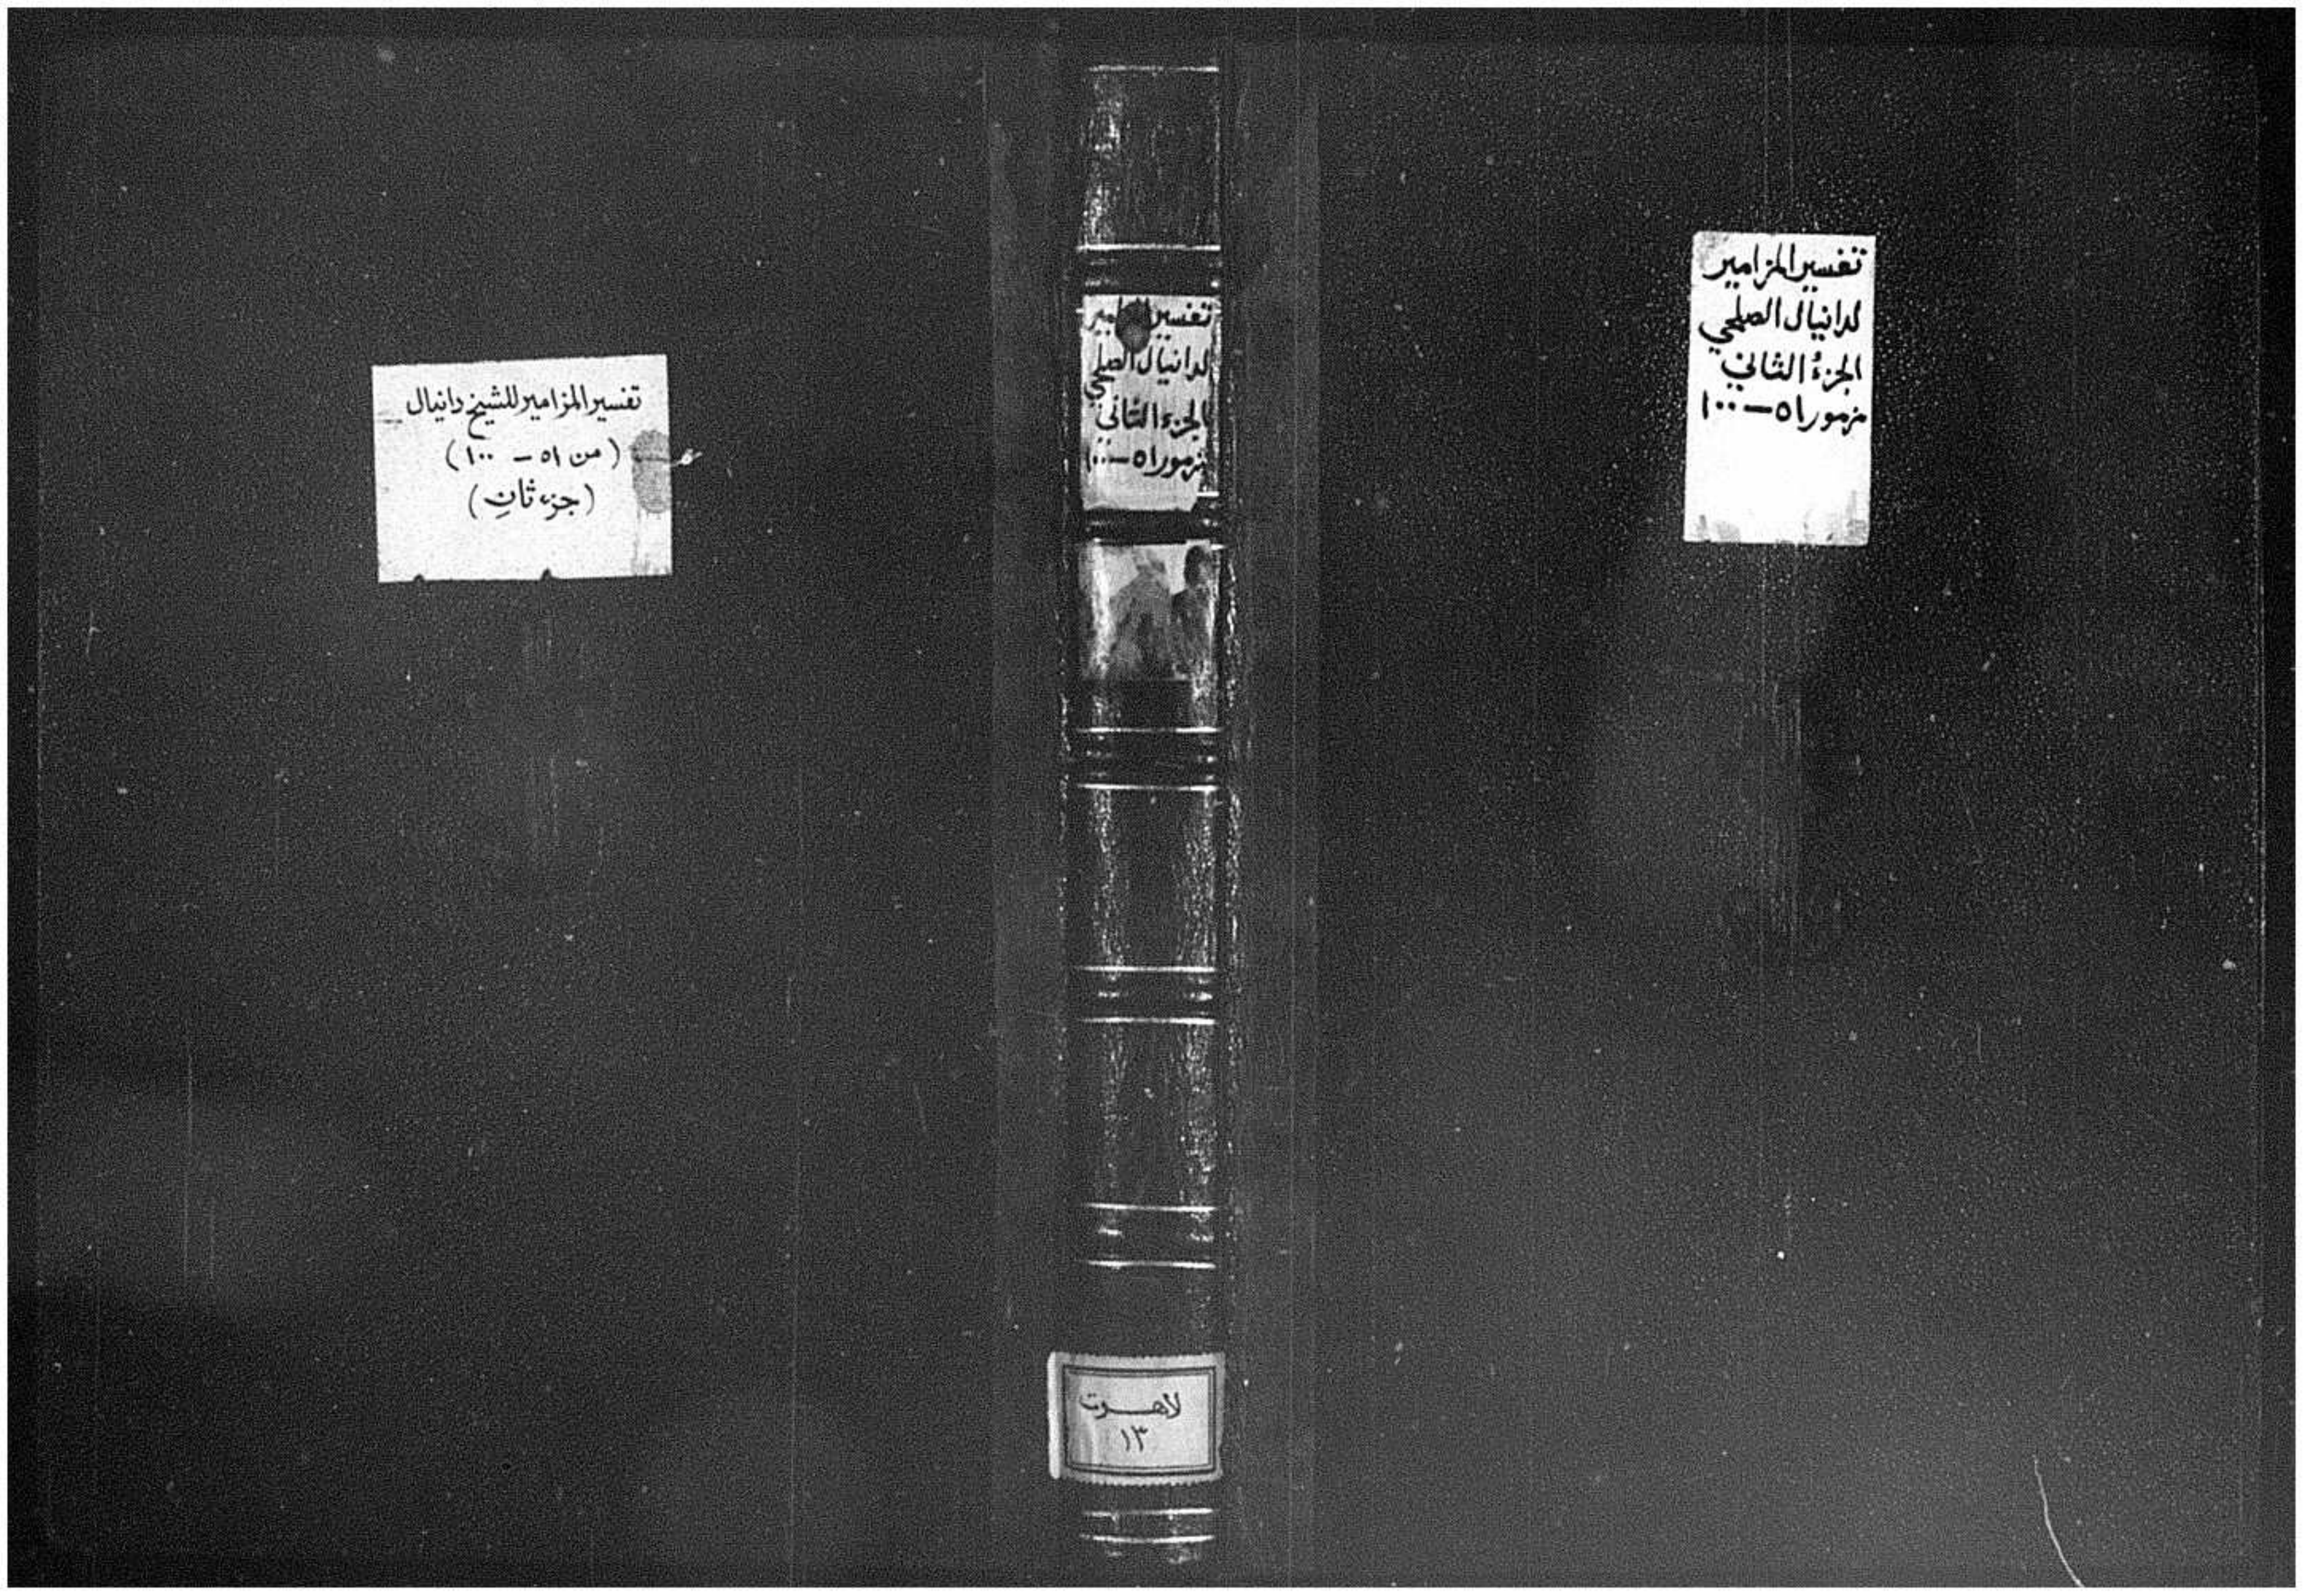 تفسير المزامير
لدانيال الصلحي
الجزءُ الثاني
مزمور ٥١ – ١٠٠
تفسير
لدانيال الصلحي
الجزء الثاني
مزمور ٥١ – ١٠٠
لاهوت
١٣
تفسير المزامير للشيخ دانيال
(من ٥١ – ١٠٠)
(جزء ثانٍ)